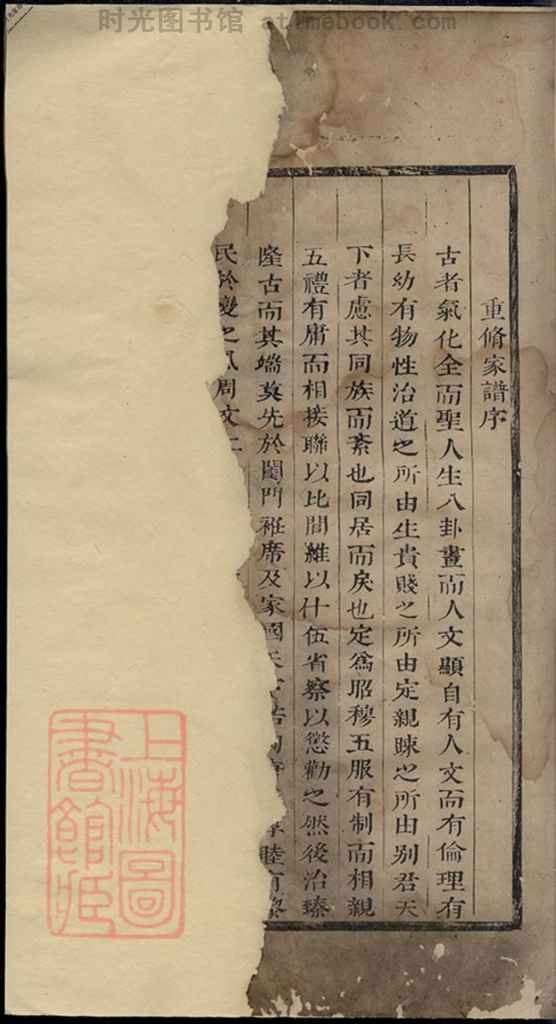 时光图书馆 atimebook.com
重脩家譜序
古者氣化全而聖人生八卦畫而人文顯自有人文而有倫理有
長幼有物性治道之所由生貴賤之所由定親踈之所由别君天
下者慮其同族而紊也同居而戾也定爲昭穆五服有制而相親
五禮有庸而相接聯以比閭維以什伍省察以懲勸之然後治臻
隆古而其端莫先於閨門袵席及家國天睦有
民於變之風周文
上海圖書館